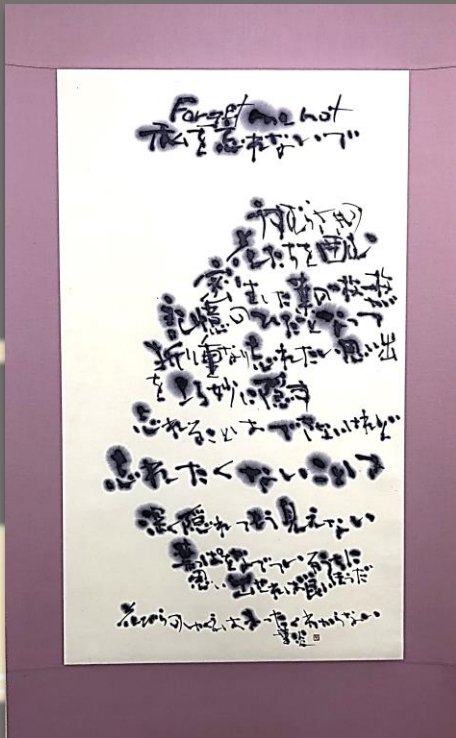 Forget me not
私を忘れないで
うすむらさきの
花たちを囲む
密生した葉の一枚一枚が
記憶のひだとなって
折り重なり忘れたい思い出
を巧妙に隠す
忘れることはできないけれど
忘れたくないことは
深く隠れてもう見えない
葉っぱをなでているうちに
思い出せれば良いほうだ
花びらの
わからない